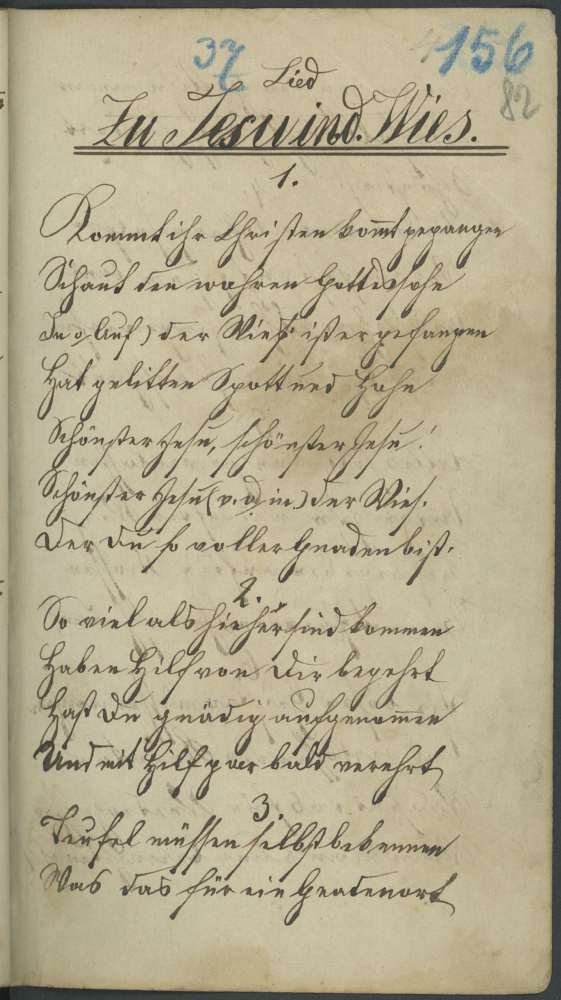 37
156
82
Lied
Zu Jesu in d. Wies.
1.
Kommt ihr Christen kom̄t gegangen
Schaut den wahren Gottessohn
In o Auf) der Wies' ist er gefangen
Hat gelitten Spott und Hohn
Schönster Jesu, schönster Jesu!
Schönster Jesu (v. o in) der Wies.
Der Du so voller Gnaden bist.
2.
So viel als hieher sind kommen
Haben Hilf von Dir begehrt
Hast Du gnädig aufgenom̄en
Und mit Hilf gar bald verehrt
3.
Teufel müssen selbst bekennen
Was das für ein Gnadenort